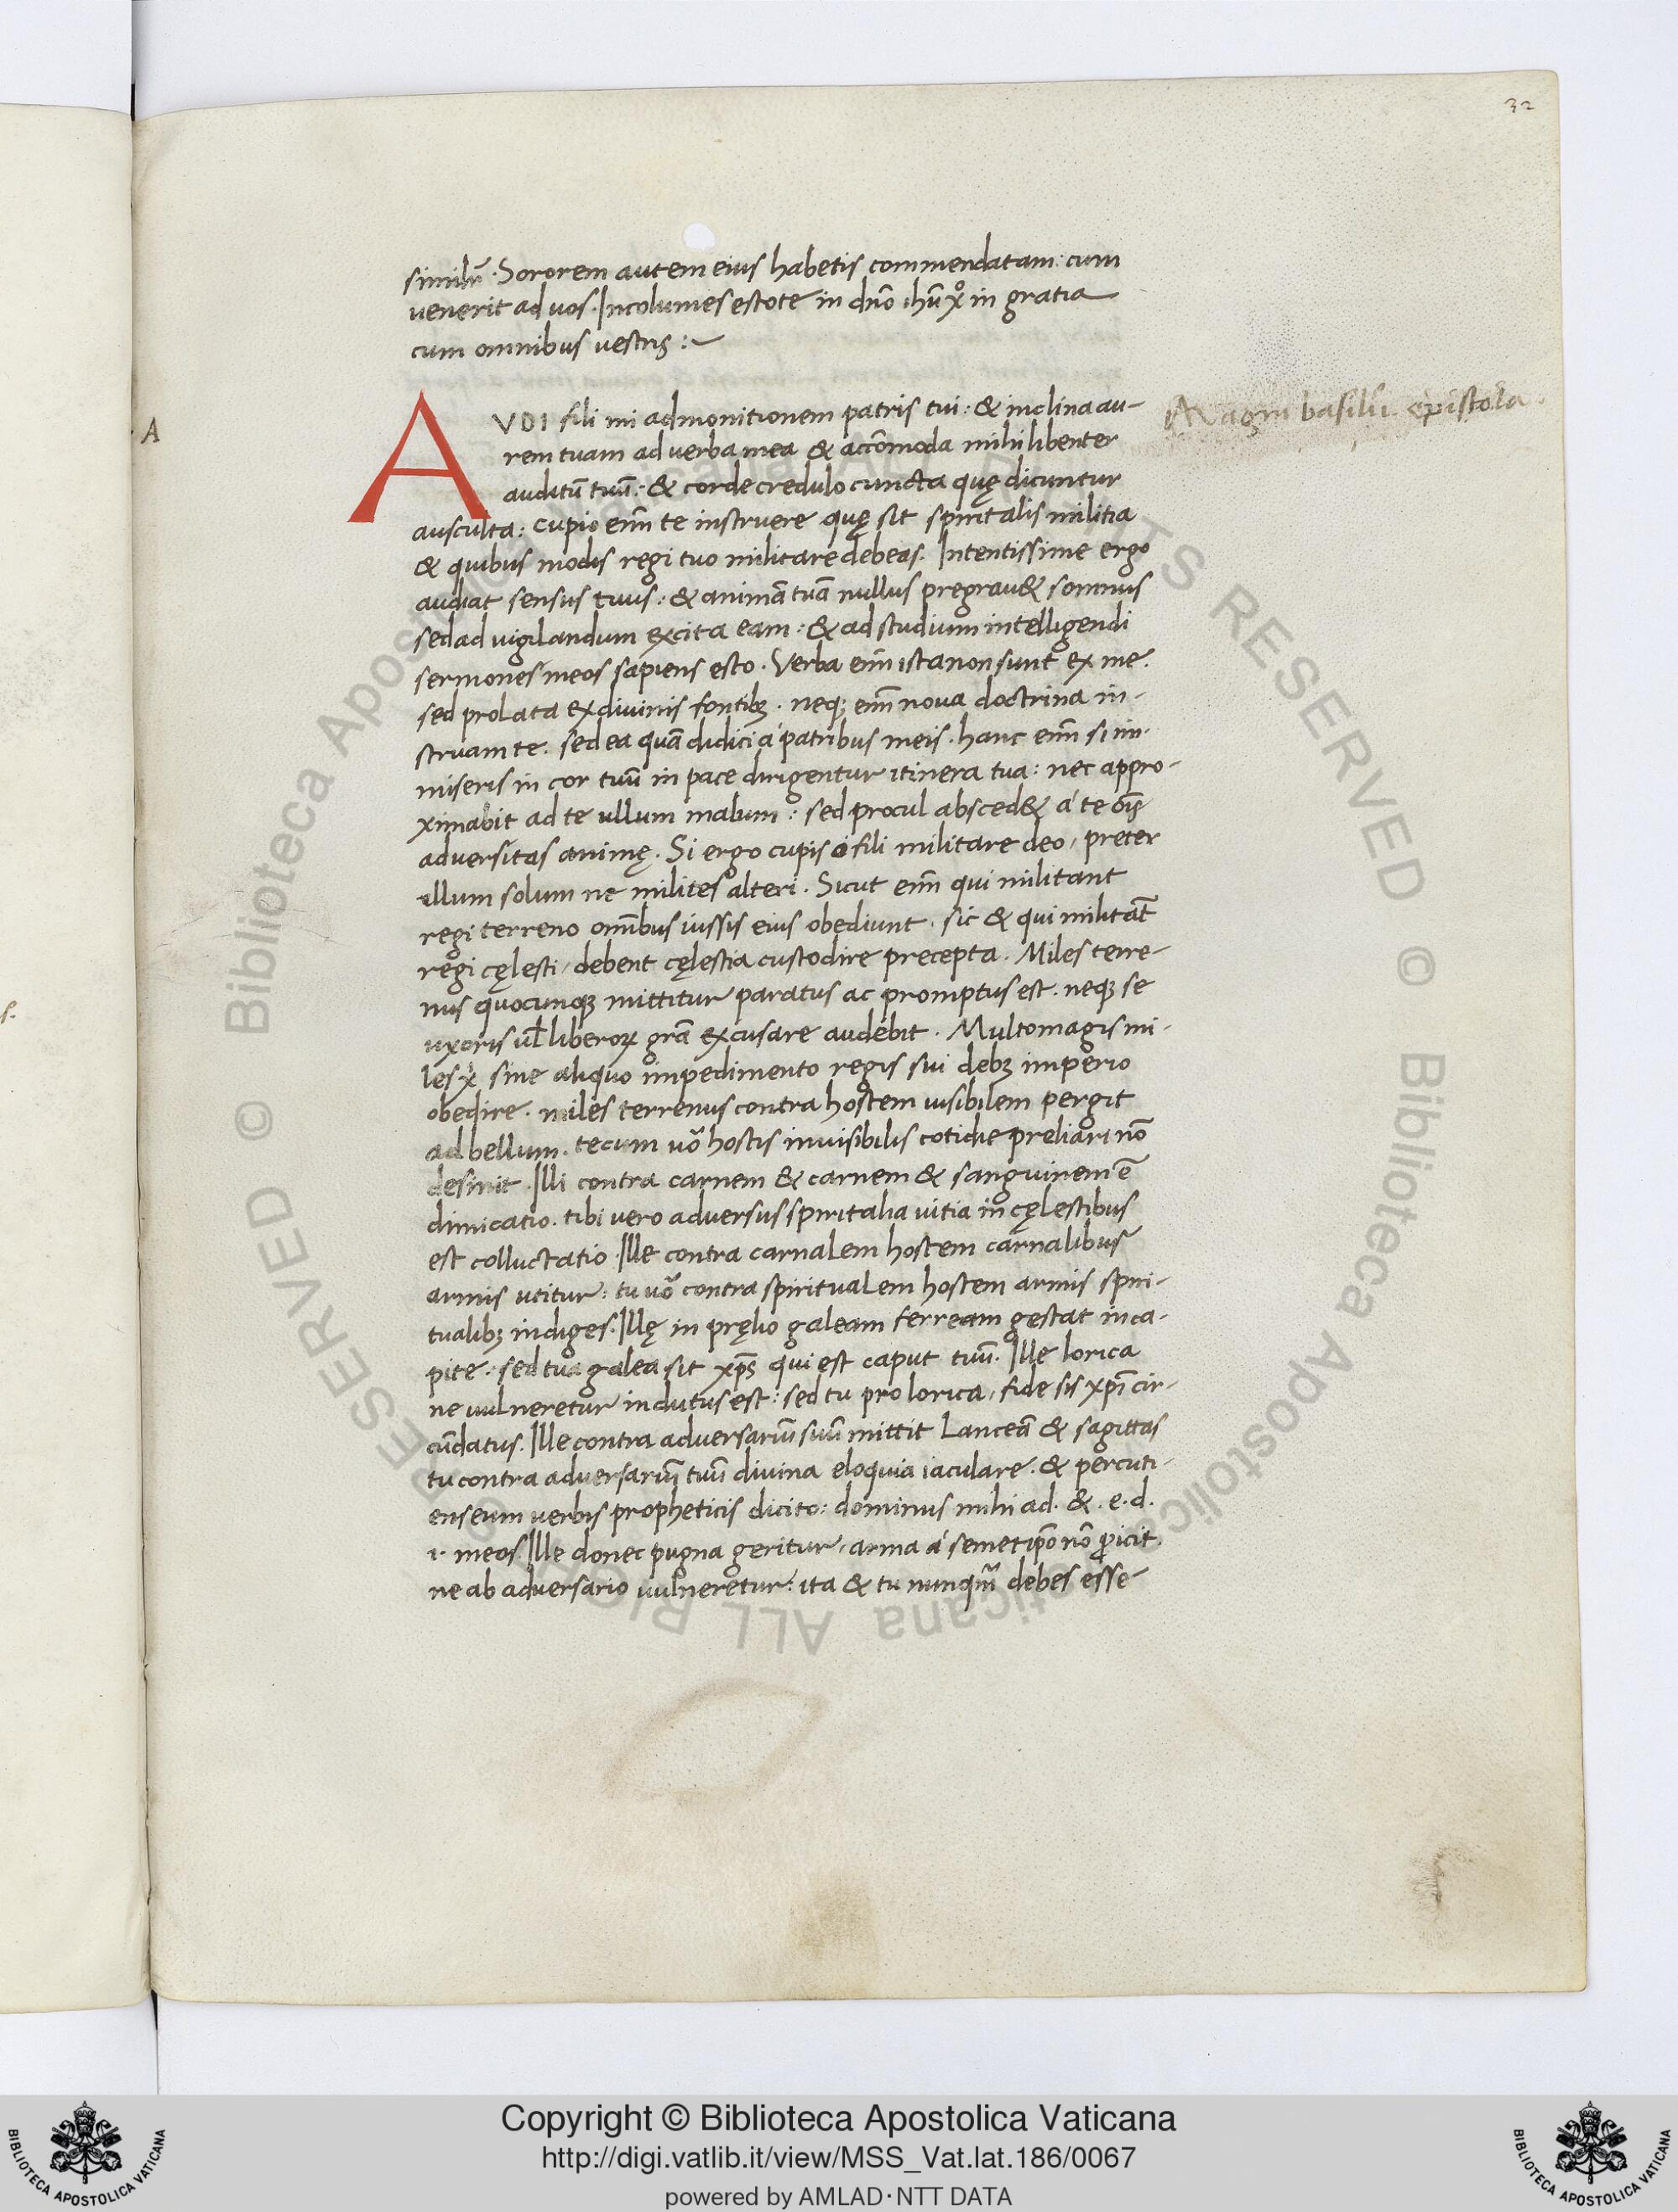 32
simil᷑r. Sororem autem eius habetis commendatam: cum
venerit ad vos. Incolumes estote in dn̄o ihū xo in gratia
cum omnibus vestris :~
A
AVDI fili mi admonitionem patris tui: & inclina au-
rem tuam ad verba mea & accōmoda mihi libenter
auditū tuū: & corde credulo cuncta quę dicuntur
ausculta: cupio enī te instruere quę sit spiritalis militia
& quibus modis regi tuo militare debeas. Intentissime ergo
audiat sensus tuus: & animā tuā nullus pregrau& somnus
sed ad vigilandum excita eam: & ad studium intelligendi
sermones meos sapiens esto. Verba enī ista non sunt ex me.
sed prolata ex divinis fontibꝫ. neqꝫ enī nova doctrina in-
struam te. sed ea quā didici á patribus meis. hanc enī si im-
miseris in cor tuū in pace dirigentur itinera tua: nec appro-
ximabit ad te ullum malum: sed procul absced& á te oīs
adversitas animę. Si ergo cupis ó fili militare deo, preter
illum solum ne milites alteri. Sicut enī qui militant
regi terreno omībus iussis eius obediunt. sic & qui militāt
regi cęlesti, debent cęlestia custodire precepta. Miles terre-
nus quocunqꝫ mittitur paratus ac promptus est. neqꝫ se
uxoris ul̄ liberoꝝ grā excusare audebit. Multo magis mi-
les xi sine aliquo impedimento regis sui debꝫ imperio
obedire. miles terrenus contra hostem visibilem pergit
ad bellum. tecum vō hostis invisibilis cotidie preliari nō
desinit. Illi contra carnem & carnem & sanguinem ē
dimicatio. tibi vero adversus spiritalia vitia in cęlestibus
est colluctatio. Ille contra carnalem hostem carnalibus
armis utitur: tu vō contra spiritualem hostem armis spiri-
tualibꝫ indiges. Illę in pręlio galeam ferream gestat in ca-
pite. sed tua galea sit xp̄s qui est caput tuū. Ille lorica
ne vulneretur indutus est: sed tu pro lorica, fide sis xp̄i cir-
cūdatus. Ille contra adversariū suū mittit lanceā & sagittas
tu contra adversariū tuū divina eloquia iaculare. & percuti-
ens eum verbis propheticis dicito: dominus mihi ad. &. e. d.
i. meos. Ille donec pugna geritur, arma á semetip̄o nō ꝓicit.
ne ab adversario vulneretur: ita & tu nunqm̄ debes esse
Magni basilii epistola.
© Biblioteca Apostolica Vaticana ALL RIGHTS RESERVED
© Biblioteca Apostolica Vaticana ALL RIGHTS RESERVED
BIBLIOTECA APOSTOLICA VATICANA
Copyright © Biblioteca Apostolica Vaticana
http://digi.vatlib.it/view/MSS_Vat.lat.186/0067
powered by AMLAD·NTT DATA
BIBLIOTECA APOSTOLICA VATICANA